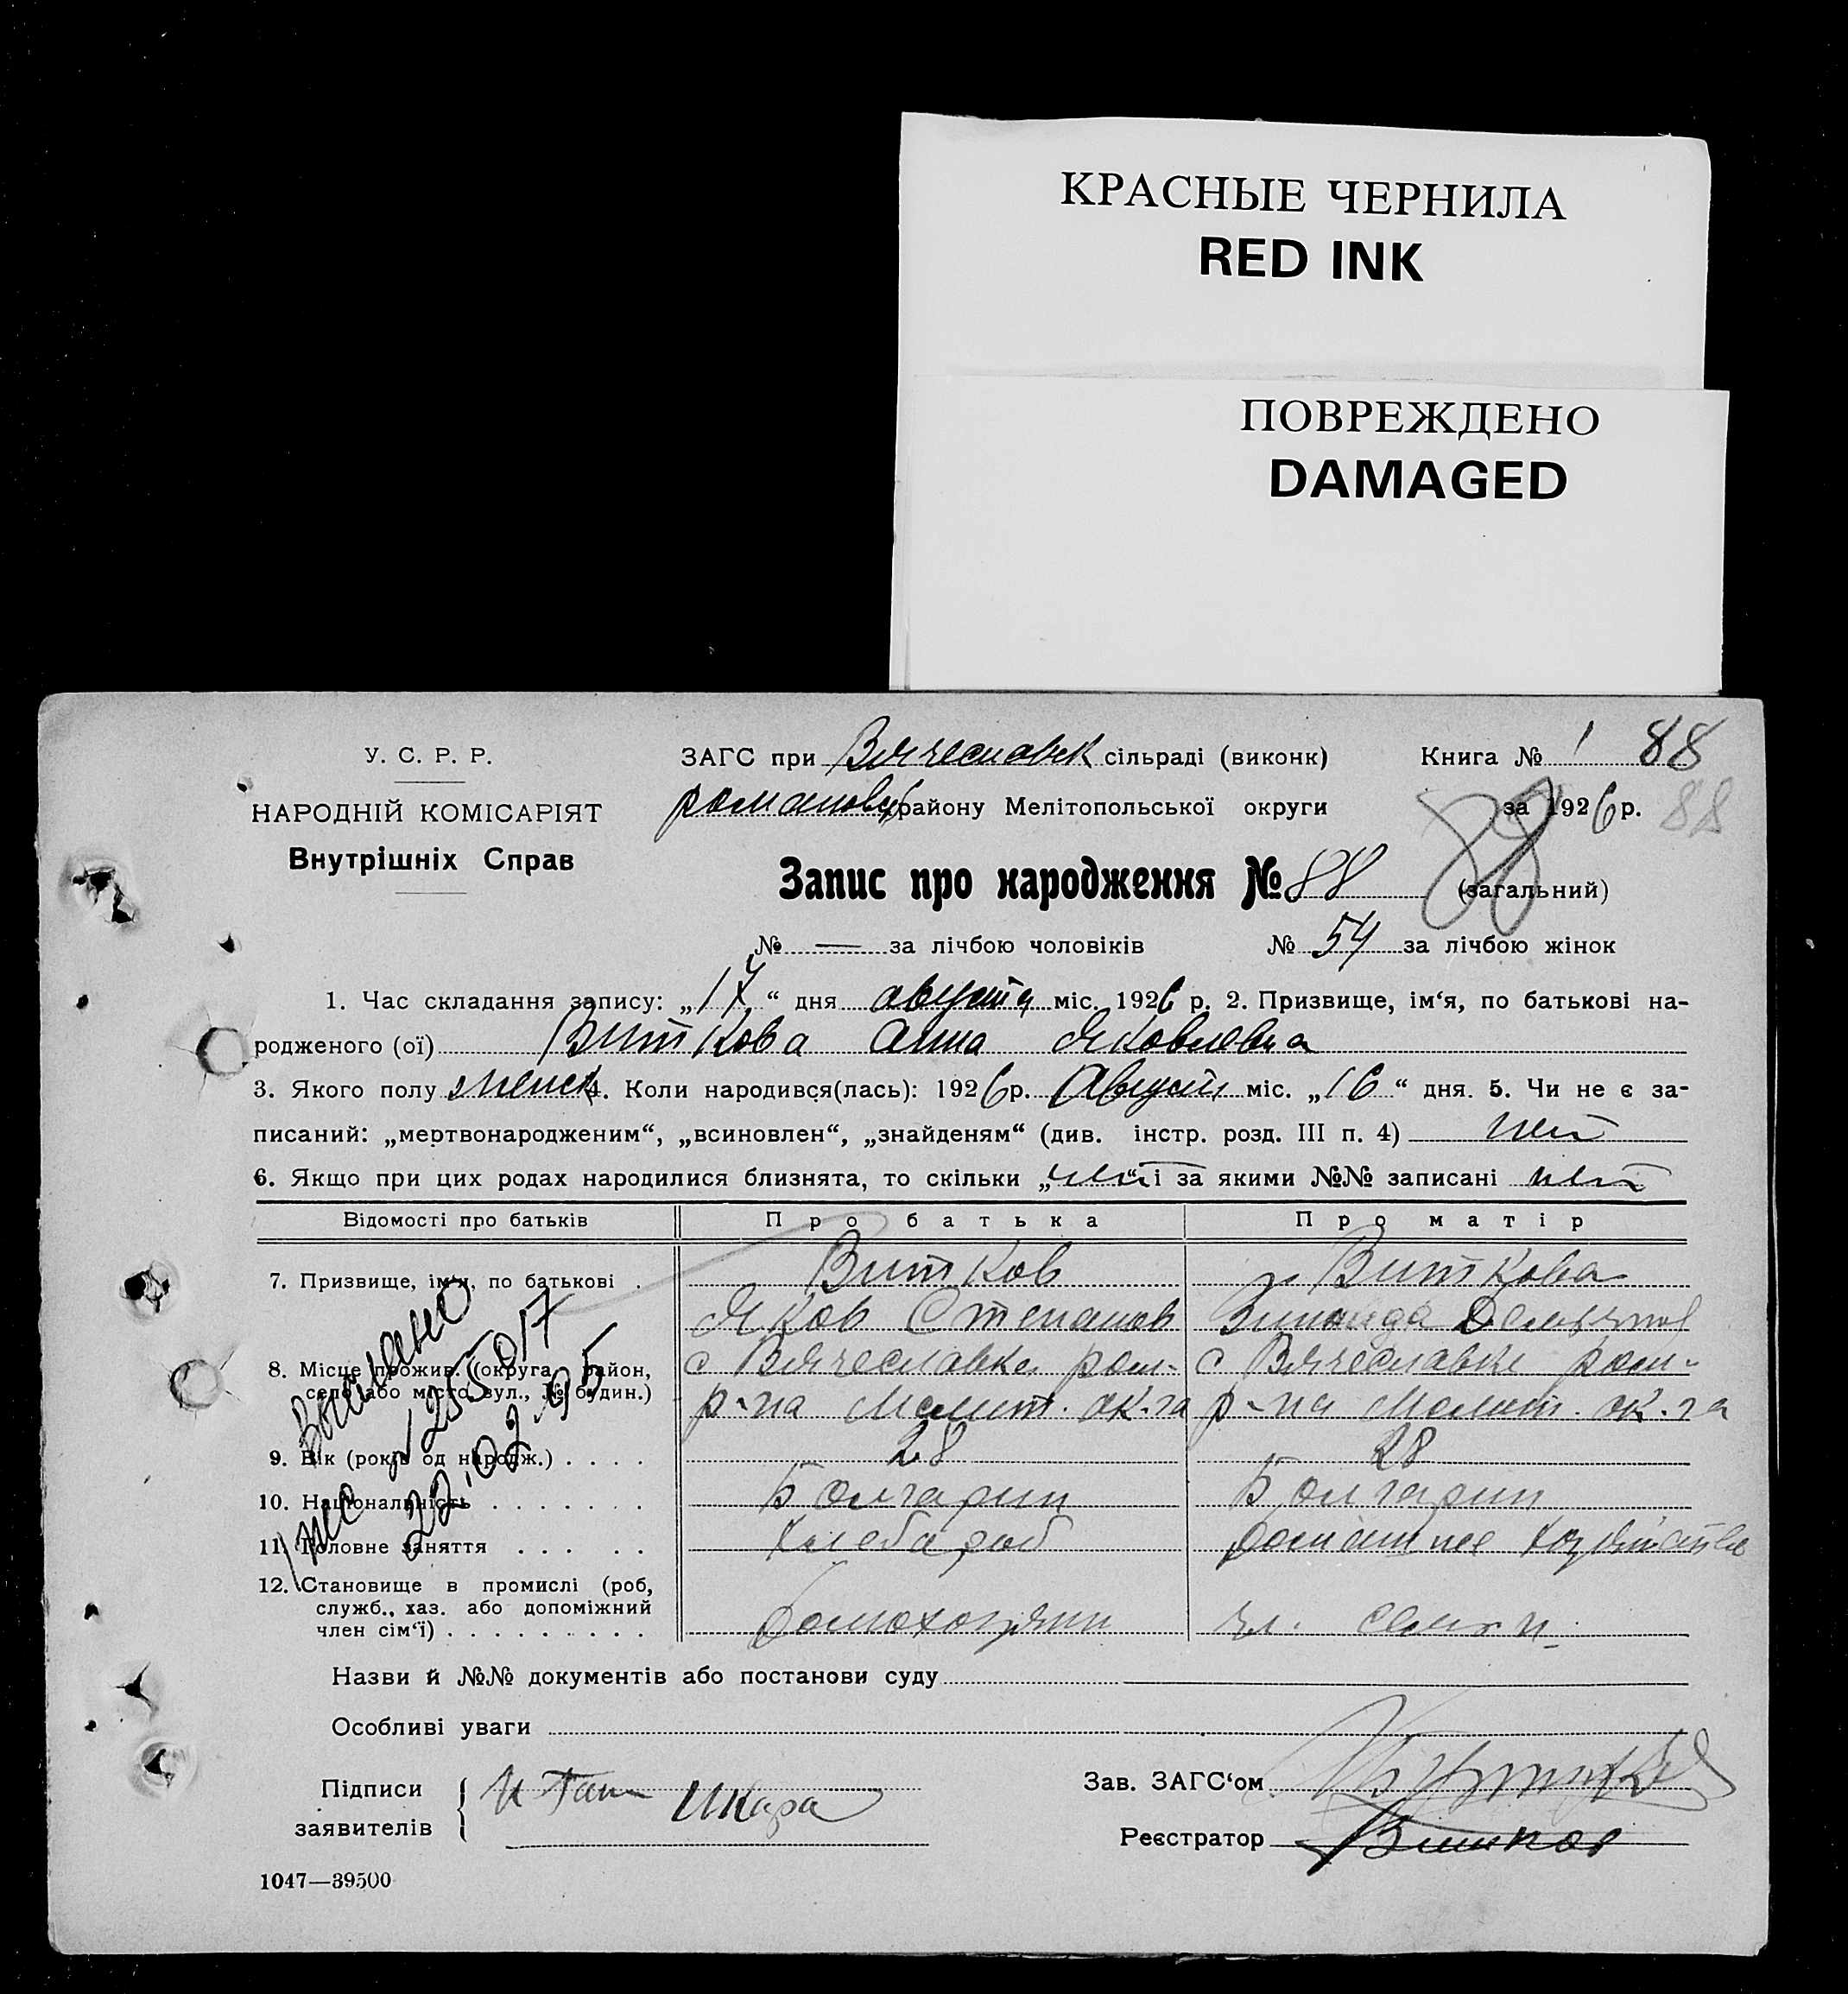 КРАСНЫЕ ЧЕРНИЛА
RED INK
ПОВРЕЖДЕНО
DAMAGED
У. С. Р. Р.
НАРОДНІЙ КОМІСАРІЯТ
Внутрішніх Справ
ЗАГС при Вячеславск сільраді (виконк) Книга № 1 88
романовск району Мелітопольської округи за 1926 р. 88
88
Запис про народження № 88 (загальний)
№ — за лічбою чоловіків № 54 за лічбою жінок
1. Час складання запису: „17“ дня августа міс. 1926 р. 2. Призвище, ім‘я, по батькові на-
родженого (ої) Виткова Анна Яковлевна
3. Якого полу женск 4. Коли народився(лась): 1926 р. Август міс. „16“ дня. 5. Чи не є за-
писаний: „мертвонародженим“, „всиновлен“, „знайденям“ (див. інстр. розд. III п. 4) нет
6. Якщо при цих родах народилися близнята, то скільки „нет“ і за якими №№ записані нет
Відомості про батьків Про батька Про матір
7. Призвище, ім‘я, по батькові . Витков Виткова
Яков Степанов Зинаида
8. Місце прожив. (округа, район, село або місто, вул., № будин.) с Вячеславка ром- с Вячеславке ром-
р-на Мелит. ок-га р-на Мелит. ок-га
9. Вік (років од народж.) . . . . 28 28
10. Національність . . . . . . . Болгарин Болгарин
11. Головне заняття . . . . . Хлебароб домашнее хозяйство
12. Становище в промислі (роб,
служб., хаз. або допоміжний
член сім‘ї) . . . . . . . . . домохозяин чл. семьи
Выслано
255017
22.02.95
Назви й №№ документів або постанови суду
Особливі уваги
Підписи
заявителів
Шкара
Зав. ЗАГС‘ом
Реєстратор Витков
1047—39500